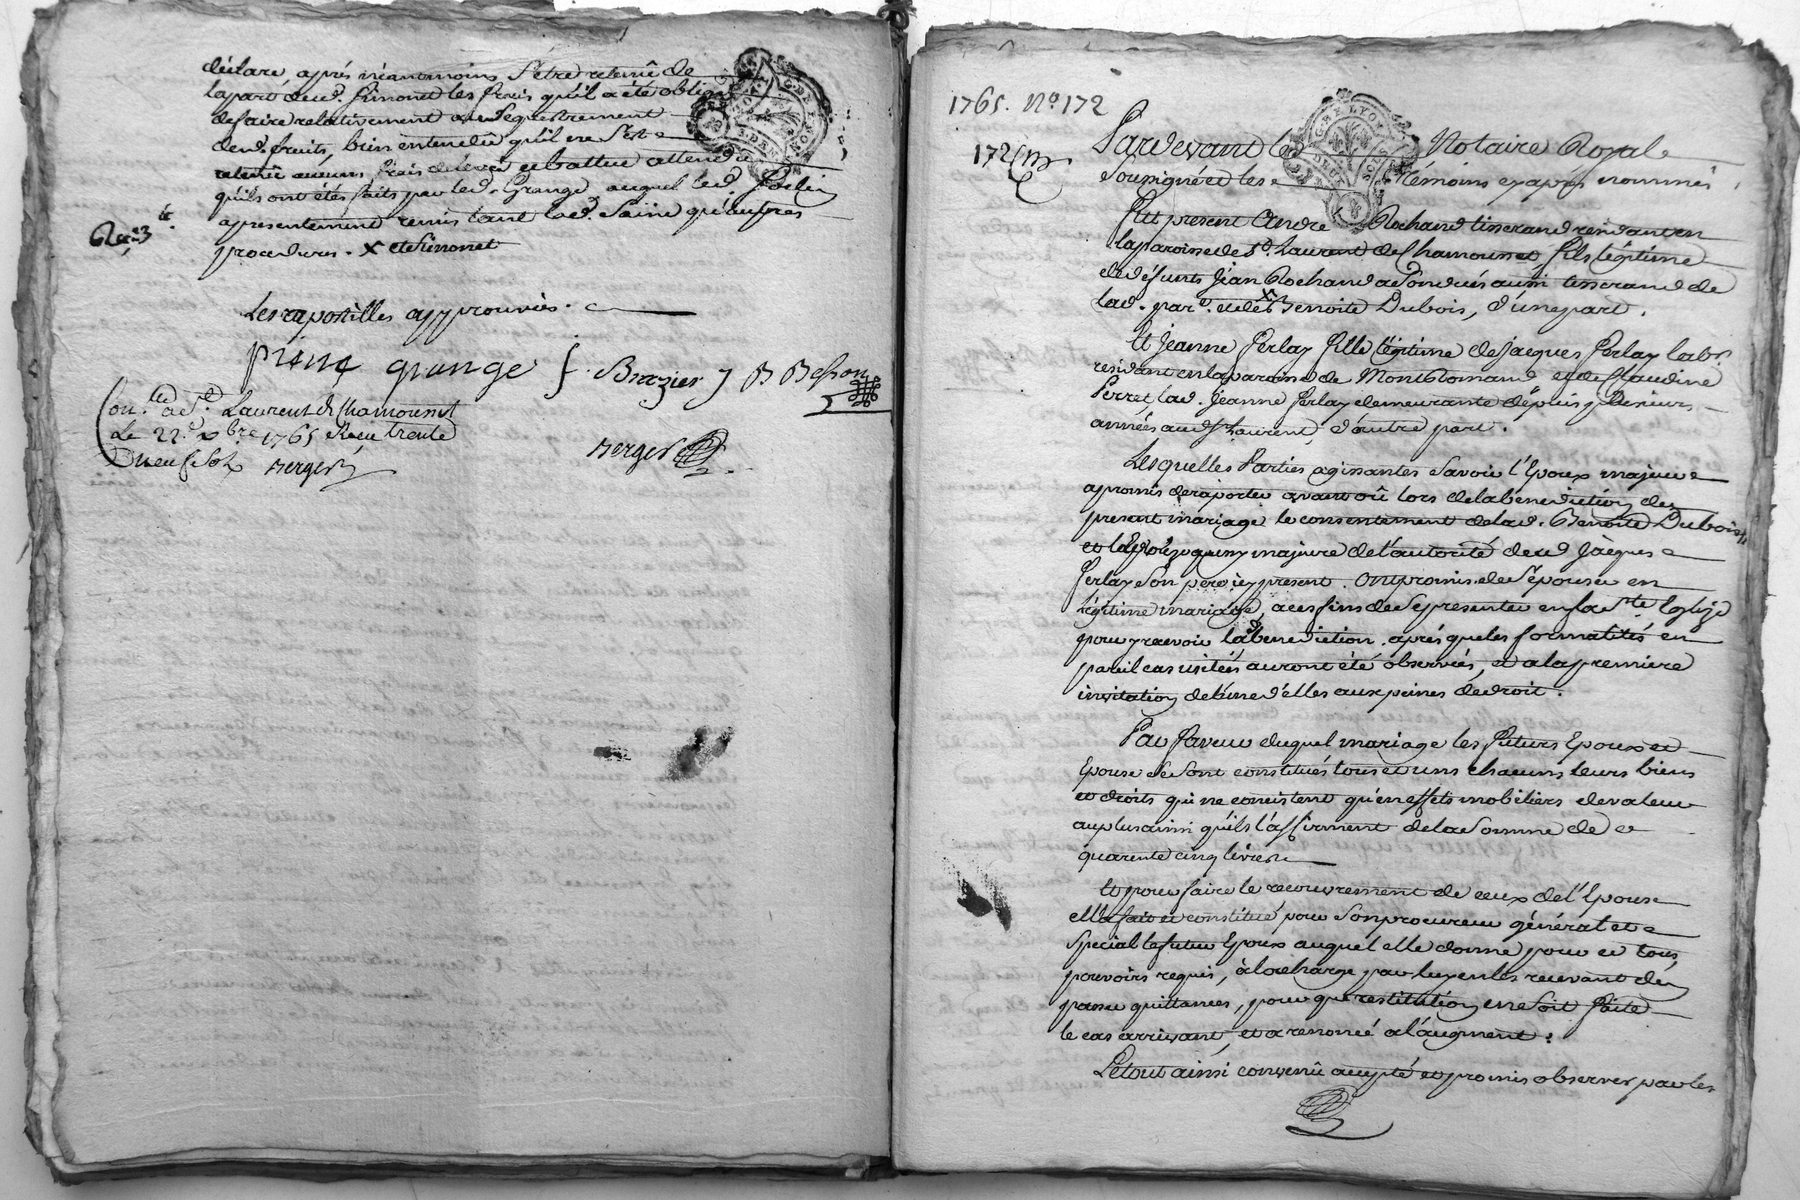 déclare, après néantmoins s'être retenû de
la part dud. Simonet les frais qu'il a été obligé
de faire relativement au séquestrement
desd. fruits, bien entendû qu'il ne s'est
retenû aucuns frais de levée et battue attendu
qu'ils ont étés faits par led. Grange, auquel led.
a présentement remis tant lad. saisie qu'autres
procedures. x et Simonet
Les apostilles approuvées.
pierre grange f. Brazier J B Besson
Con.lé à St. Laurent de Chamousset
Le 22e. xbre 1765 Reçu trente
neuf sols Berger
Berger
1765. No. 172
172
Pardevant le Notaire Royal
soussigné et les témoins cy après nommés
Fut présent André Rochand tisserand résidant en
la paroisse de St. Laurent de Chamousset, fils légitime
de défunts Jean Rochand a son vivant aussi tisserand de
lad. par.e et de x Benoite Dubois, d'une part.
Et Jeanne Ferlay fille légitime de Jacques Ferlay lab.r
résidant en la paroisse de Montromand et de Claudine
Perret, lad. Jeanne Ferlay demeurante depuis plusieurs
années aud. St Laurent, d'autre part.
Lesquelles Parties agissantes savoir l'Epoux majeur
a promis de raporter avant où lors de la bénédiction du
présent mariage le consentement de lad. Benoite Dubois
et l'Epouse majeure de l'autorité dud. Jacques
Ferlay son père icy présent. ont promis de s'épouser en
légitime mariage, a ces fins de se présenter en face de ste Eglize
pour y recevoir lad. bénédiction. après que les formalités en
pareil cas usitées auront été observées, et a la première
invitation de l'une d'elles aux peines de droit.
En faveur duquel mariage les futurs Epoux et
Epouse se sont constitués tous et uns chacuns leurs biens
et droits qui ne consistent qu'en effets mobiliers de valeur
au plus ainsi qu'ils l'affirment de la somme de
quarente cinq livres
Et pour faire le recouvrement de ceux de l'Epouse
elle fait et constitue pour son procureur général et
spécial le futur Epoux auquel elle donne pour ce tous
pouvoirs requis, à la charge par luy en les recevant d'en
passer quittances, pour que restitution en soit faite
le cas arrivant, et a renoncé a l'augment.
Le tout ainsi convenû accepté et promis observer par les